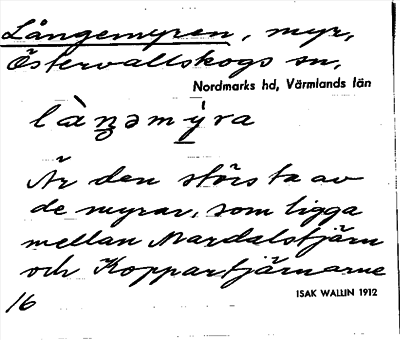 Långemyren, myr,
Östervallskogs sn,
Nordmarks hd, Värmlands län
là̀ŋəmy̆́ra
Är den största av
de myrar, som ligga
mellan Mardalstjärn
och Koppartjärnarne
16
ISAK WALLIN 1912